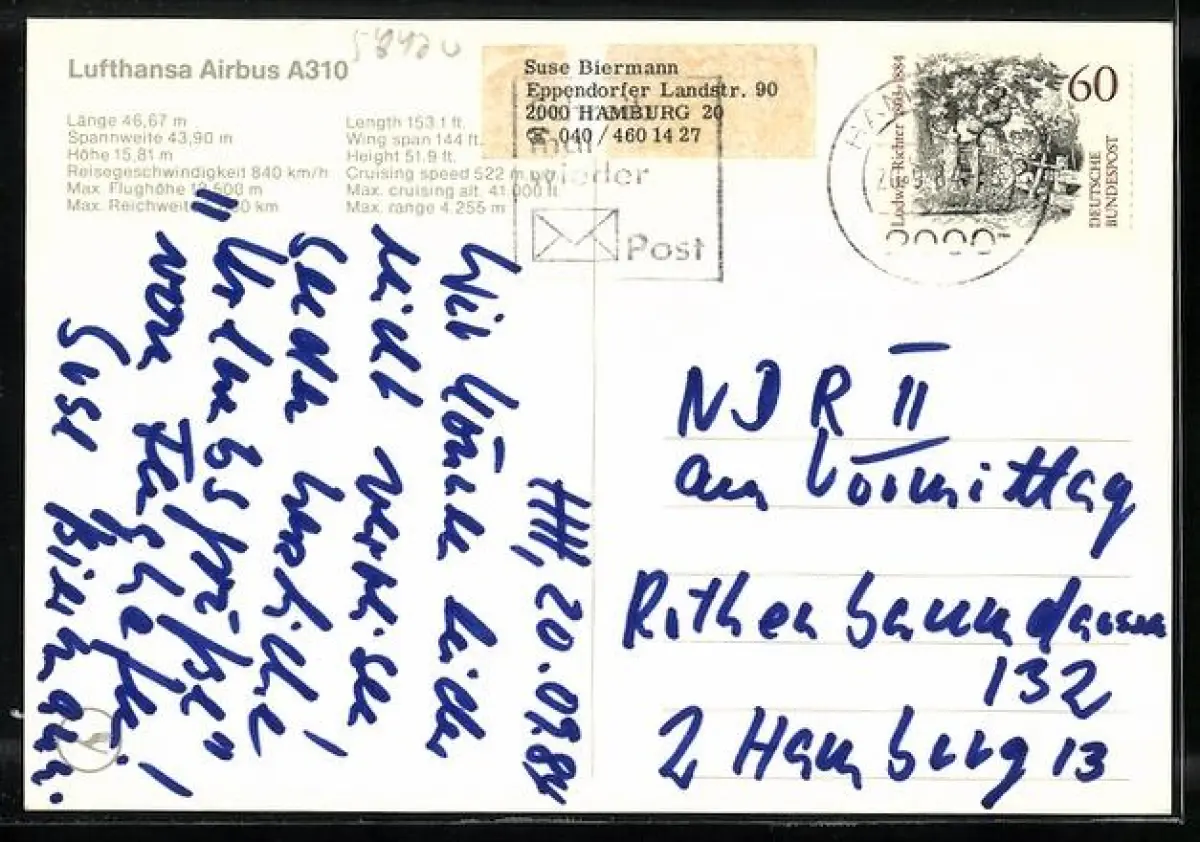 Lufthansa Airbus A310
Länge 46,67 m
Spannweite 43,90 m
Höhe 15,81 m
Reisegeschwindigkeit 840 km/h
Max. Flughöhe 500 m
Max. Reichweite km
Length 153.1 ft.
Wing span 144 ft.
Height 51.9 ft.
Cruising speed 522
Max. cruising alt. 41 000 ft
Max. range 4.255 m
Suse Biermann
Eppendorfer Landstr. 90
2000 HAMBURG 20
☎ 040 / 460 14 27
mal
wieder
Post
Ludwig Richter 1803-1884
60
DEUTSCHE
BUNDESPOST
HH, 20.09.84
Wir
nicht
"Urlaubsgrüße"
von
Suse Biermann.
NDR II
am Vormittag
Rothenbaumchaussee
132
2 Hamburg 13